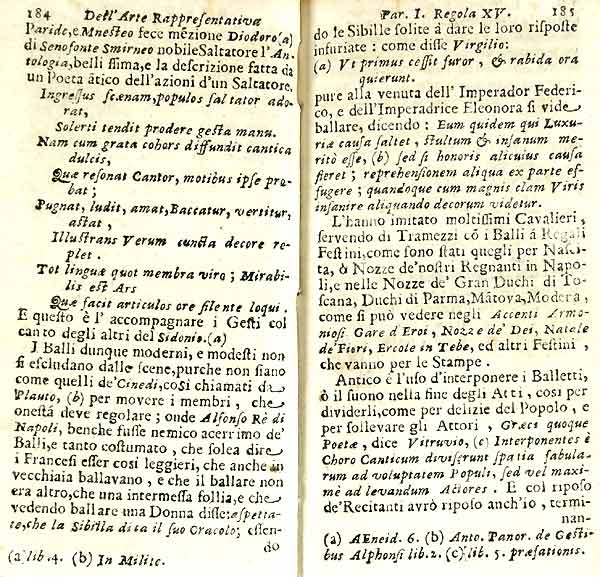 184 Dell'Arte Rappresentativa
Paride, e Mnesteo fece mēzione Diodoro (a)
di Senofonte Smirneo nobile Saltatore l'An-
tologia, belli ssima, e la descrizione fatta da
un Poeta ātico dell'azioni d'un Saltatore.
Ingressus scænam, populos sal tator ado-
rat,
Solerti tendit prodere gesta manu.
Nam cum grata cohors diffundit cantica
dulcis,
Quæ resonat Cantor, motibus ipse pro-
bat;
Pugnat, ludit, amat, Baccatur, vertitur,
astat,
Illustrans Verum cuncta decore re-
plet.
Tot linguæ quot membra viro; Mirabi-
lis est Ars
Quæ facit articulos ore silente loqui.
E questo è l' accompagnare i Gesti col
canto degli altri del Sidonio. (a)
I Balli dunque moderni, e modesti non
si escludano dalle scene, purche non siano
come quelli de' Cinedi, così chiamati da
Plauto, (b) per movere i membri, che
onestá deve regolare; onde Alfonso Rè di
Napoli, benche fusse nemico acerrimo de'
Balli, e tanto costumato, che solea dire
i Francesi esser così leggieri, che anche in
vecchiaia ballavano, e che il ballare non
era altro, che una intermessa follia, e che
vedendo ballare una Donna disse: aspetta-
te, che la Sibilla di ta il suo Oracolo; essen-
do
(a) lib. 4. (b) In Milite.
Par. I. Regola XV. 185
do le Sibille solite á dare le loro risposte
infuriate: come disse Virgilio:
(a) Vt primus cessit furor, & rabida ora
quierunt.
pure alla venuta dell' Imperador Federi-
co, e dell'Imperadrice Eleonora si vide
ballare, dicendo: Eum quidem qui Luxu-
riæ causa saltet, stultum & insanum me-
ritò esse, (b) sed si honoris alicuius causa
fieret; reprehensionem aliqua ex parte ef-
fugere; quandoque cum magnis clam Viris
insanire aliquando decorum videtur.
L'hanno imitato moltissimi Cavalieri,
servendo di Tramezzi cō i Balli á Regali
Festini, come sono stati quegli per Nasci-
ta, ò Nozze de'nostri Regnanti in Napo-
li, e nelle Nozze de' Gran Duchi di To-
scana, Duchi di Parma, Mātova, Modera,
come si può vedere negli Accenti Armo-
niosi Gare d'Eroi, Nozze de' Dei, Natele
de'Fiori, Ercole in Tebe, ed altri Festini,
che vanno per le Stampe.
Antico è l'uso d'interponere i Balletti,
ò il suono nella fine degli Atti, così per
dividerli, come per delizie del Popolo, e
per sollevare gli Attori, Græci quoque
Poetæ, dice Vitruvio, (c) Interponentes è
Choro Canticum diviserunt spatia fabula-
rum ad voluptatem Populi, sed vel maxi-
mè ad levandum Actores. E col riposo
de'Recitanti avrò riposo anch'io, termi-
nan-
(a) AEneid. 6. (b) Anto. Panor. de Gesti-
bus Alphonsi lib. 2. (c) lib. 5. præfationis.